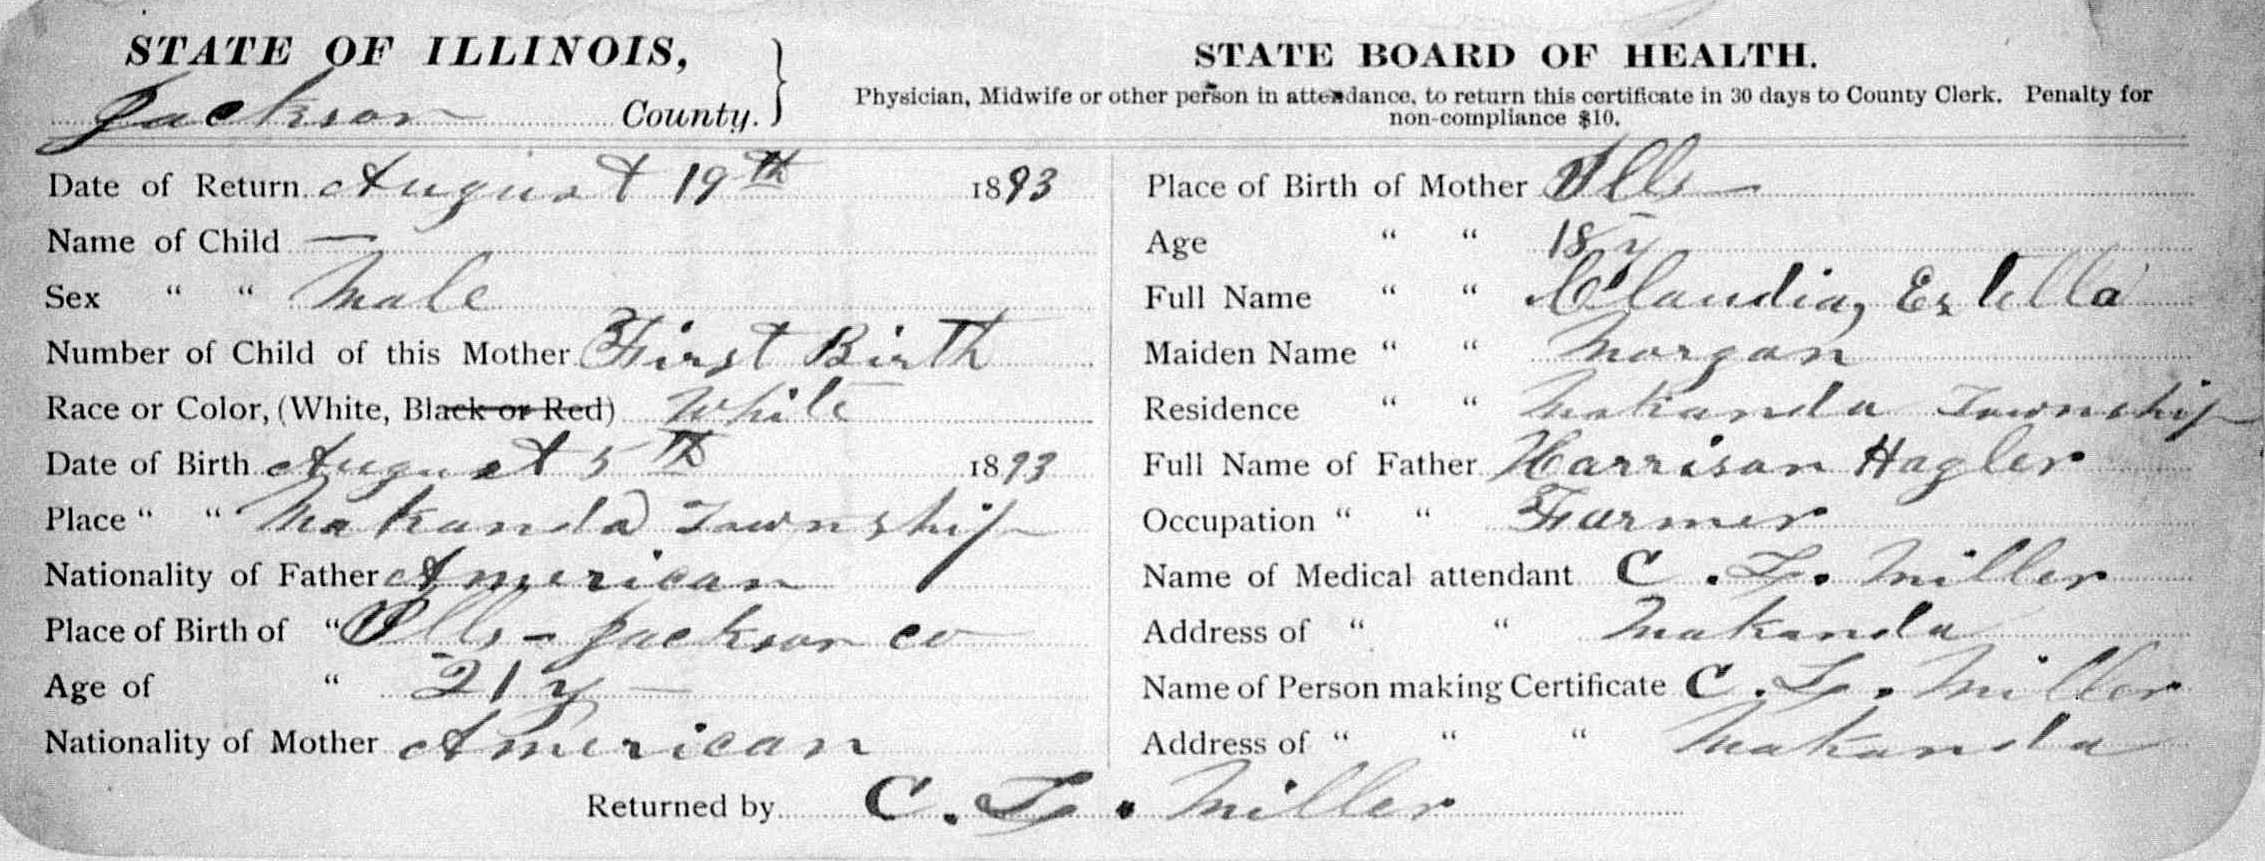 STATE OF ILLINOIS,
Jackson County.
STATE BOARD OF HEALTH.
Physician, Midwife or other person in attendance, to return this certificate in 30 days to County Clerk. Penalty for
non-compliance $10.
Date of Return August 19th 1893
Name of Child —
Sex " " Male
Number of Child of this Mother First Birth
Race or Color, (White, Black or Red) White
Date of Birth August 5th 1893
Place " " Makanda Township
Nationality of Father American
Place of Birth of " Ills - Jackson co
Age of " 21 y —
Nationality of Mother American
Place of Birth of Mother Ills —
Age " " 18 y
Full Name " " Claudia, Estella
Maiden Name " " Morgan
Residence " " Makanda Township
Full Name of Father Harrison Hagler
Occupation " " Farmer
Name of Medical attendant C. L. Miller
Address of " " Makanda
Name of Person making Certificate C. L. Miller
Address of " " " Makanda
Returned by C. L. Miller